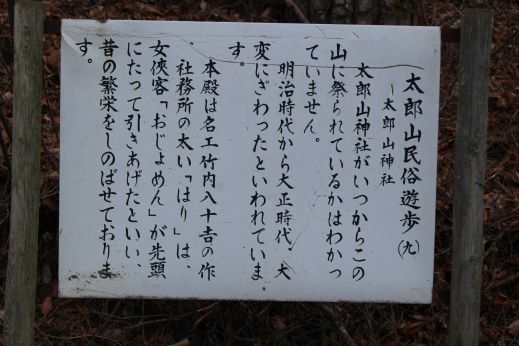 太郎山民俗遊歩(九)
－太郎山神社
太郎山神社がいつからこの
山に祭られているかはわかっ
ていません。
明治時代から大正時代、大
変にぎわったといわれていま
す。
本殿は名工竹内八十吉の作
社務所の太い「はり」は、
女侠客「おじょめん」が先頭
にたって引きあげたといい、
昔の繁栄をしのばせておりま
す。